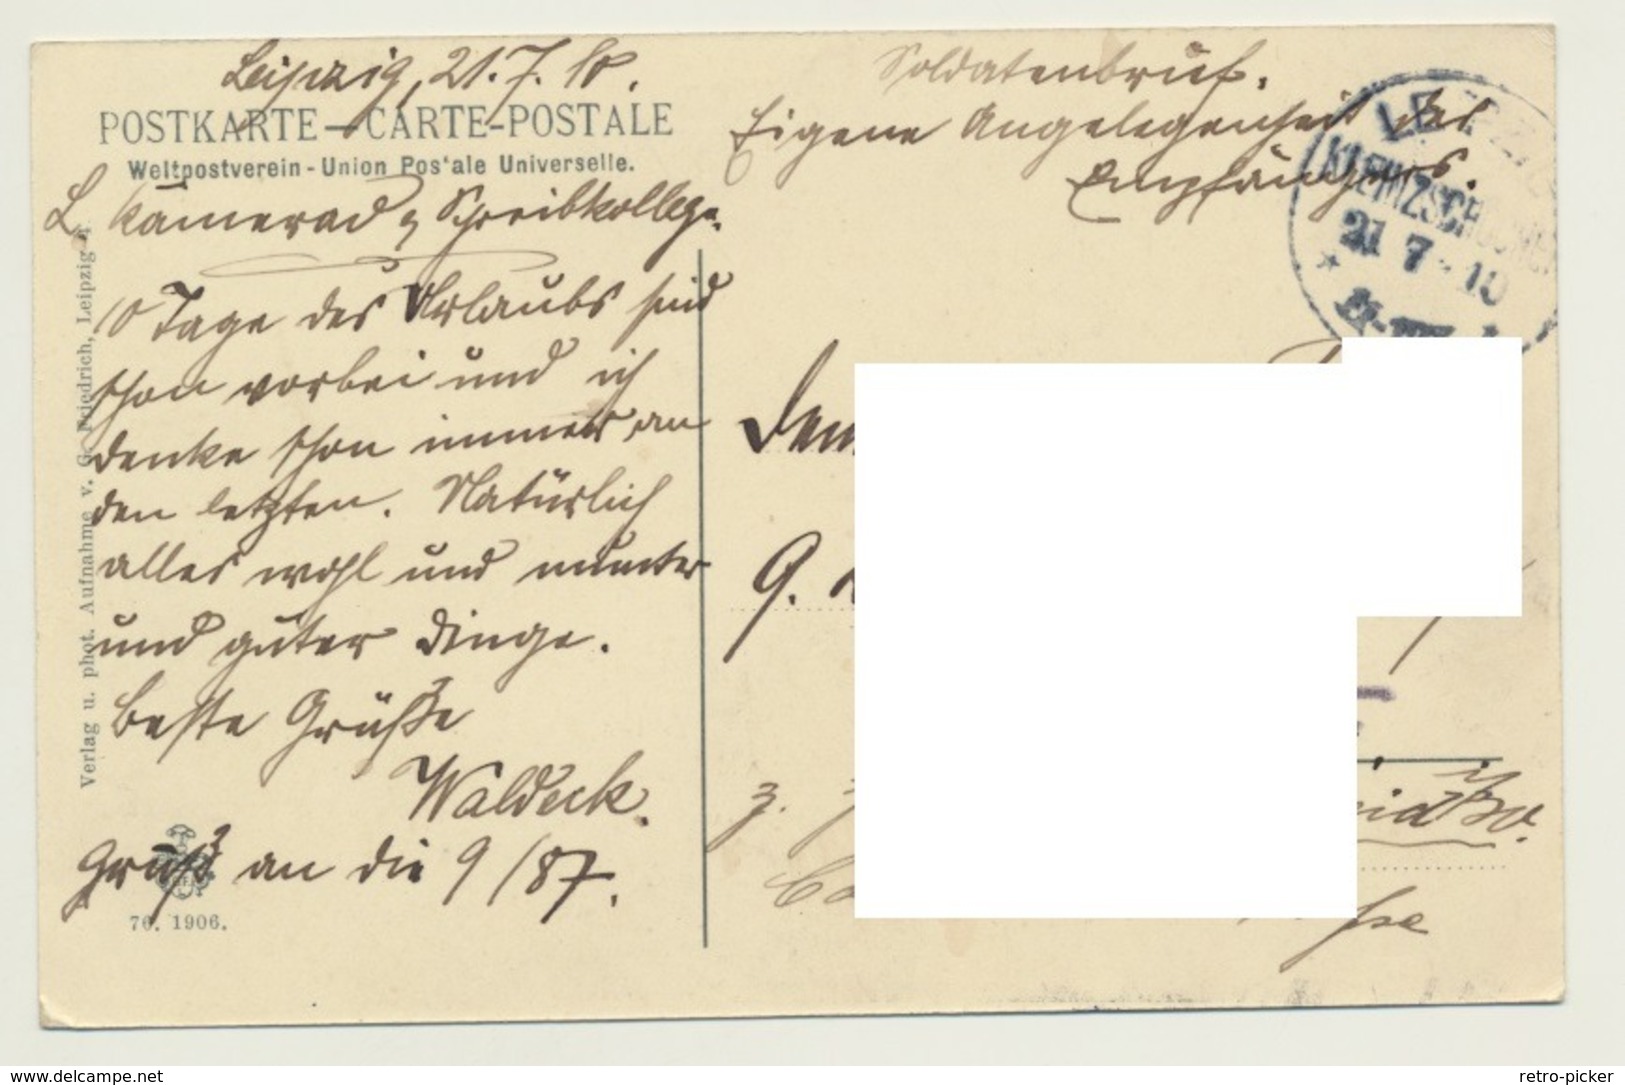 Leipzig, 21.7.10.
POSTKARTE – CARTE-POSTALE
Weltpostverein - Union Pos'ale Universelle.
L Kamerad u Schreibkollege.
10 Tage des Urlaubs sind
schon vorbei und ich
denke schon immer an
den letzten. Natürlich
alles wohl und munter
und guter Dinge.
Beste Grüße
Waldeck.
Gruß an die 9/87.
70. 1906.
Verlag u. phot. Aufnahme v. G. Friedrich, Leipzig
Soldatenbrief.
Eigene Angelegenheit des
Empfängers.
LEIPZIG
KLEINZSCHOCHER
21 7 10
Dem
9.
z. Z.
delete-watermark.com
retro-picker